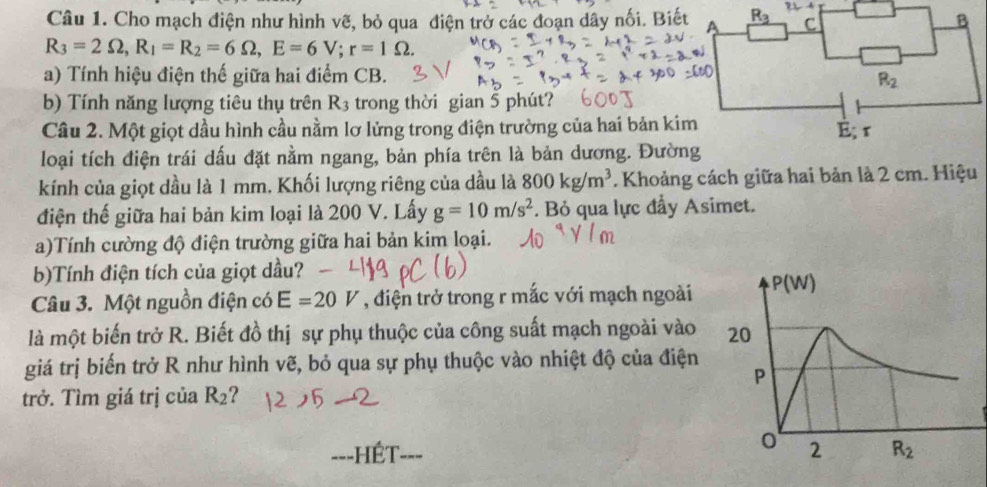 Câu 1. Cho mạch điện như hình vẽ, bỏ qua điện trở các đoạn dây nối. Biết
R₃ = 2 Ω, R₁ = R₂ = 6 Ω, E = 6 V; r = 1 Ω.
a) Tính hiệu điện thế giữa hai điểm CB. 3V
b) Tính năng lượng tiêu thụ trên R₃ trong thời gian 5 phút? 600J
A R₃ C B
R₂
E; r
Câu 2. Một giọt dầu hình cầu nằm lơ lửng trong điện trường của hai bản kim
loại tích điện trái dấu đặt nằm ngang, bản phía trên là bản dương. Đường
kính của giọt dầu là 1 mm. Khối lượng riêng của dầu là 800 kg/m³. Khoảng cách giữa hai bản là 2 cm. Hiệu
điện thế giữa hai bản kim loại là 200 V. Lấy g = 10 m/s². Bỏ qua lực đẩy Asimet.
a)Tính cường độ điện trường giữa hai bản kim loại. V/m
b)Tính điện tích của giọt dầu? pC (6)
Câu 3. Một nguồn điện có E = 20 V , điện trở trong r mắc với mạch ngoài
là một biến trở R. Biết đồ thị sự phụ thuộc của công suất mạch ngoài vào
giá trị biến trở R như hình vẽ, bỏ qua sự phụ thuộc vào nhiệt độ của điện
trở. Tìm giá trị của R₂? 12,5
P(W)
20
P
O 2 R₂
---HẾT---